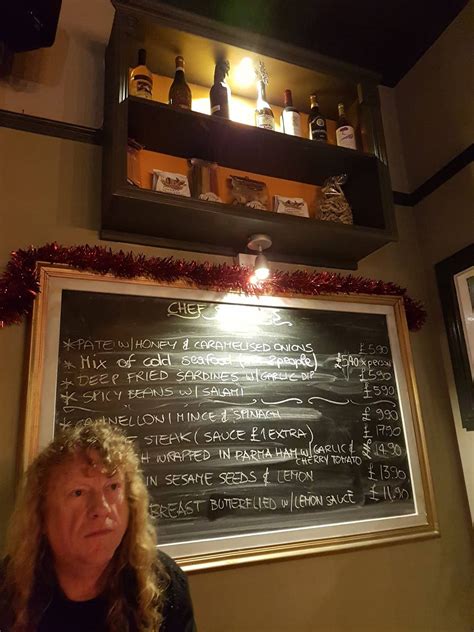 CHEF
*PATE W/ HONEY & CARAMELISED ONIONS £5.90
*MIX of cold seafood (for 2 people) £5.90 PERSON
*DEEP FRIED SARDINES W/GARLIC DIP £5.90
*SPICY BEANS W/ SALAMI £5.90
CANNELLONI MINCE & SPINACH £9.90
STEAK (SAUCE £1 EXTRA) 17.90
WRAPPED IN PARMA HAM W/ GARLIC & CHERRY TOMATO £14.90
IN SESAME SEEDS & LEMON £13.90
BREAST BUTTERFLIED W/LEMON SAUCE £11.90